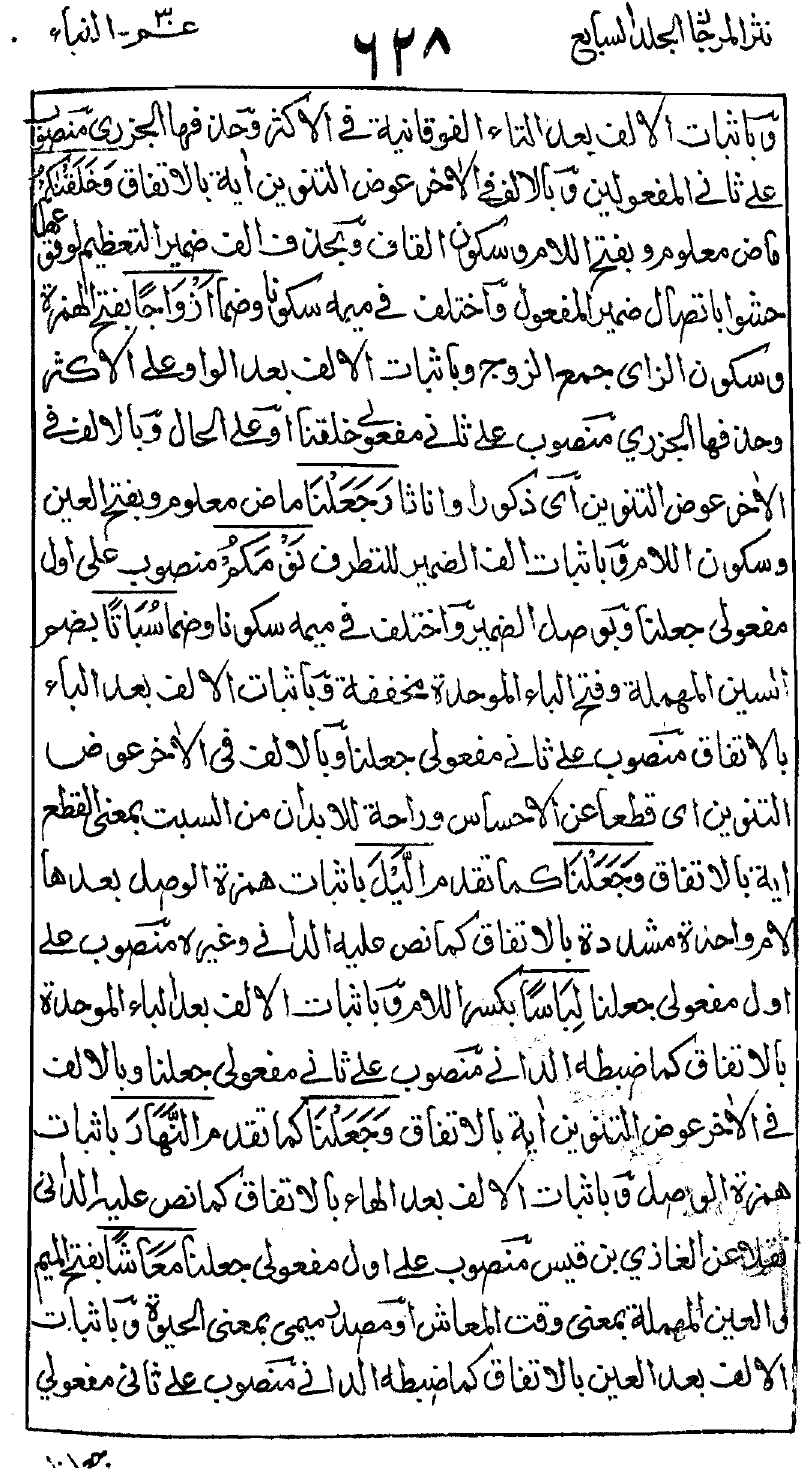 نثر المرجان المجلد السابع
٦٢٨
عم ٣٠ - النباء
وباثبات الالف بعد التاء الفوقانية في الاكثر وحذفها الجزري منصوب
على ثاني المفعولين وبالالف في الاخر عوض التنوين اٰية بالاتفاق وَخَلَقْنٰكُمْ
ماض معلوم وبفتح اللام وسكون القاف وبحذف الف ضمير التعظيم لوقوعها
حشوا باتصال ضمير المفعول واختلف في ميمه سكونا وضما اَزْوَاجًا بفتح الهمزة
وسكون الزاى جمع الزوج وباثبات الالف بعد الواو على الاكثر
وحذفها الجزري منصوب على ثاني مفعولي خلقنا او على الحال وبالالف في
الاٰخر عوض التنوين اى ذكورا واناثا وَجَعَلْنَا ماض معلوم وبفتح العين
وسكون اللام وباثبات الف الضمير للتطرف نَوْمَكُمْ منصوب على اول
مفعولى جعلنا وبوصل الضمير واختلف في ميمه سكونا وضما سُبَاتًا بضم
السين المهملة وفتح الباء الموحدة مخففة وباثبات الالف بعد الباء
بالاتفاق منصوب على ثاني مفعولى جعلنا وبالالف في الاٰخر عوض
التنوين اى قطعا عن الاحساس وراحة للابدان من السبت بمعنى القطع
اية بالاتفاق وَجَعَلْنَا كما تقدم الَّيْلَ باثبات همزة الوصل بعدها
لام واحدة مشددة بالاتفاق كما نص عليه الدانى وغيره منصوب على
اول مفعولى جعلنا لِبَاسًا بكسر اللام وباثبات الالف بعد الباء الموحدة
بالاتفاق كما ضبطه الدانى منصوب على ثاني مفعولى جعلنا وبالالف
في الاٰخر عوض التنوين اٰية بالاتفاق وَجَعَلْنَا كما تقدم النَّهَارَ باثبات
همزة الوصل وباثبات الالف بعد الهاء بالاتفاق كما نص عليه الدانى
نقلا عن الغازي بن قيس منصوب على اول مفعولى جعلنا مَعَاشًا بفتح الميم
و العين المهملة بمعنى وقت المعاش او مصدر ميمى بمعنى الحيوة وباثبات
الالف بعد العين بالاتفاق كما ضبطه الدانى منصوب على ثانى مفعولي